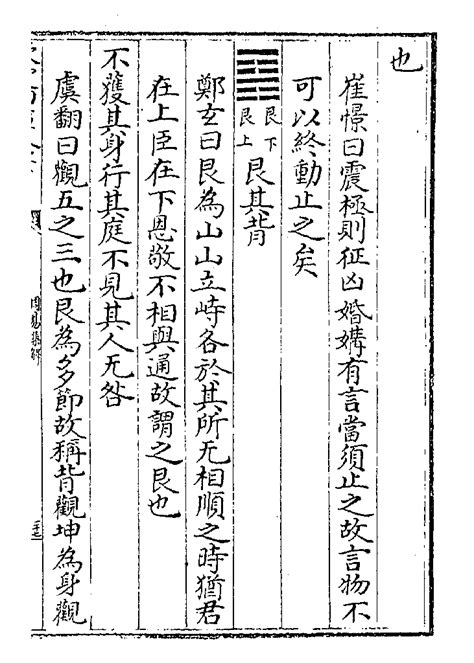 也
崔憬曰震極則征凶婚媾有言當須止之故言物不
可以終動止之矣
艮下
艮上
艮其背
鄭玄曰艮為山山立峙各於其所无相順之時猶君
在上臣在下恩敬不相與通故謂之艮也
不獲其身行其庭不見其人无咎
虞翻曰觀五之三也艮為多節故稱背觀坤為身觀
周易集解